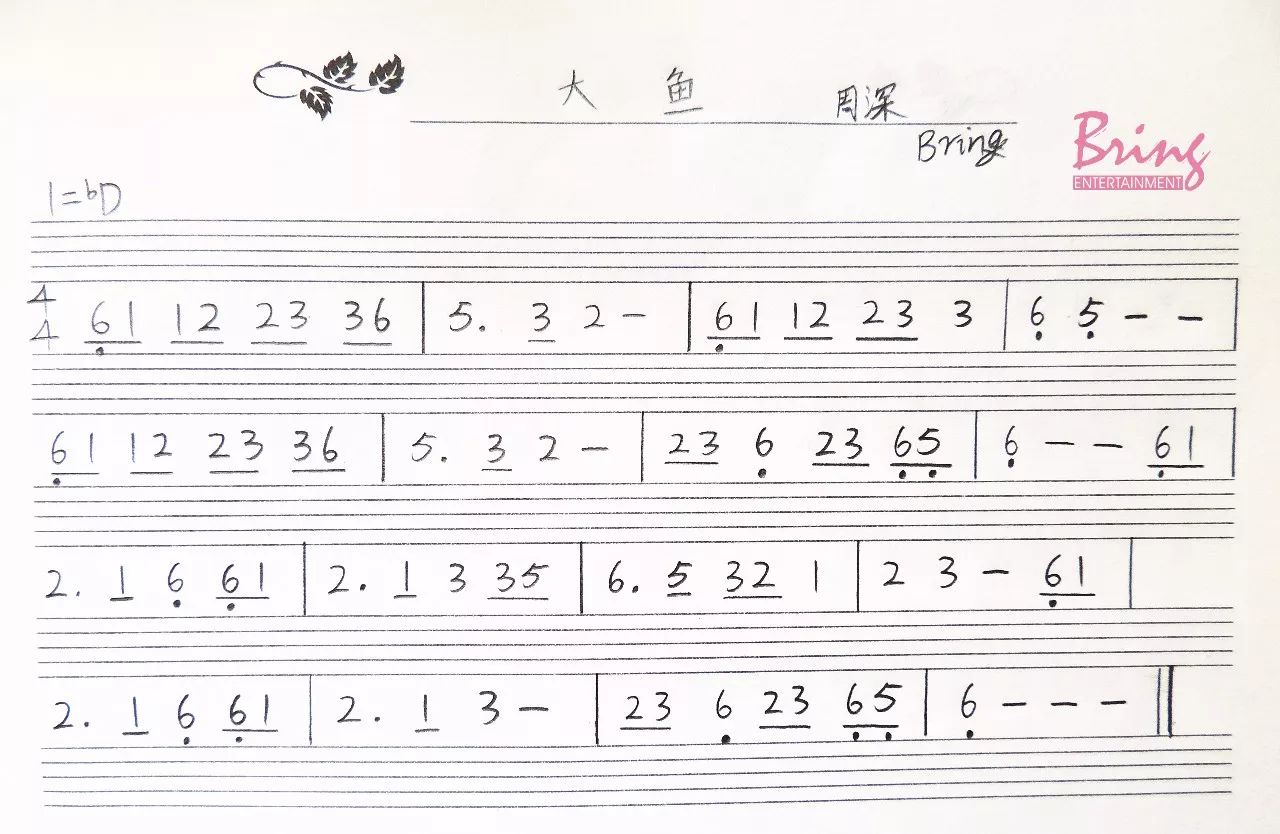 大 鱼 周深
Bring
Bring
ENTERTAINMENT
1=♭D
4/4 6̣1 12 23 36 | 5. 3 2 – | 6̣1 12 23 3 | 6̣ 5̣ – – |
6̣1 12 23 36 | 5. 3 2 – | 23 6̣ 23 6̣5̣ | 6̣ – – 6̣1 |
2. 1 6̣ 6̣1 | 2. 1 3 35 | 6. 5 32 1 | 2 3 – 6̣1 |
2. 1 6̣ 6̣1 | 2. 1 3 – | 23 6̣ 23 6̣5̣ | 6̣ – – – ||